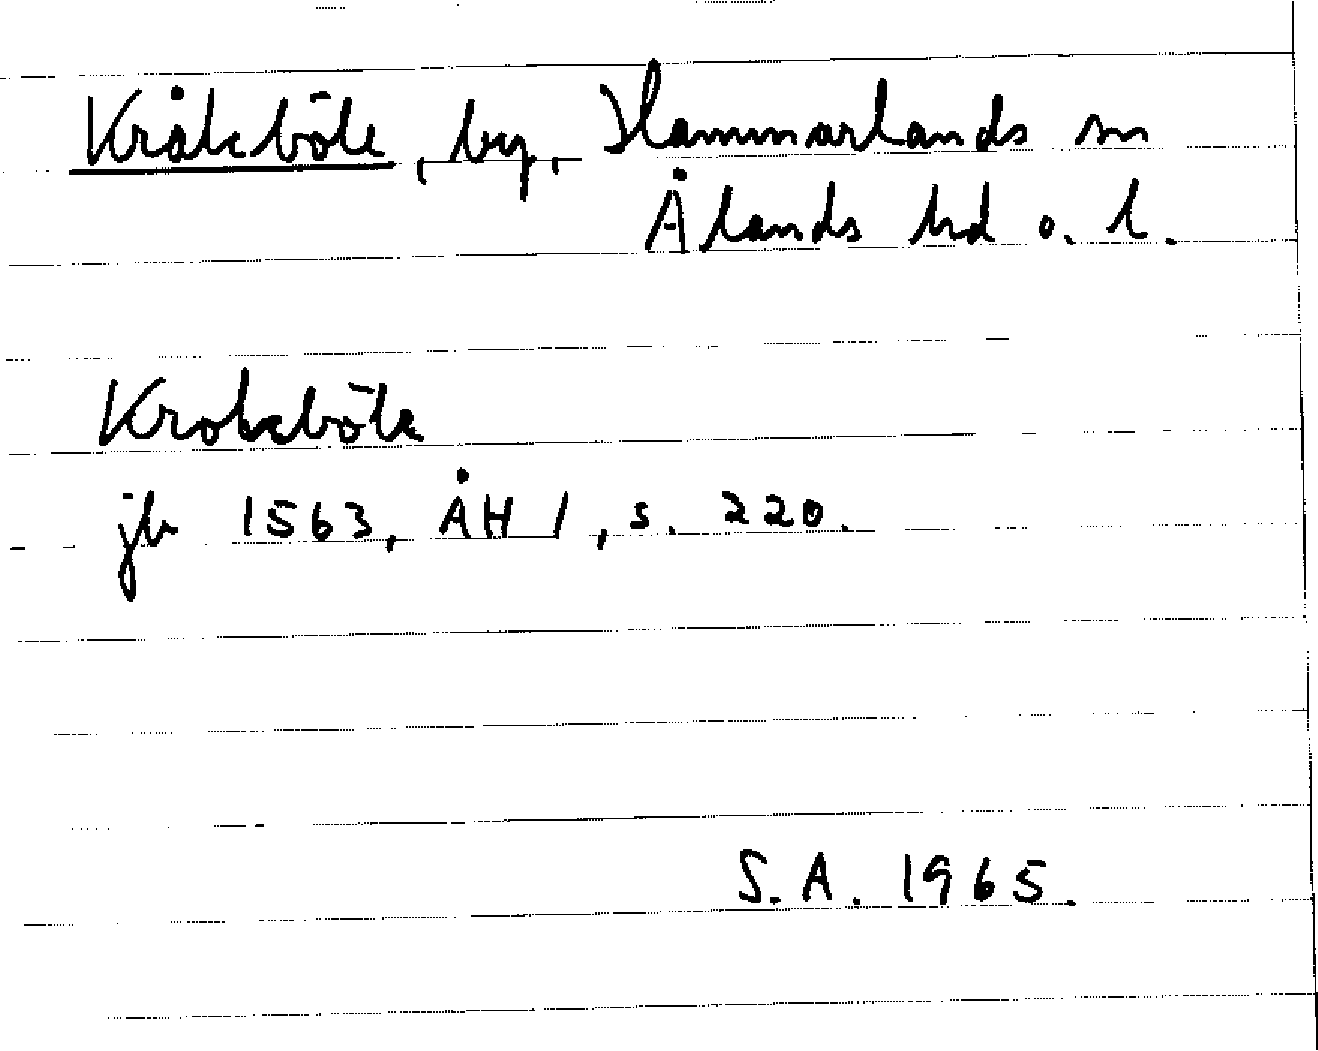 Kråkböle, by, Hammarlands sn
Ålands hd o. l.
Krokeböle
jb 1563, ÅH I, s. 220.
S.A. 1965.